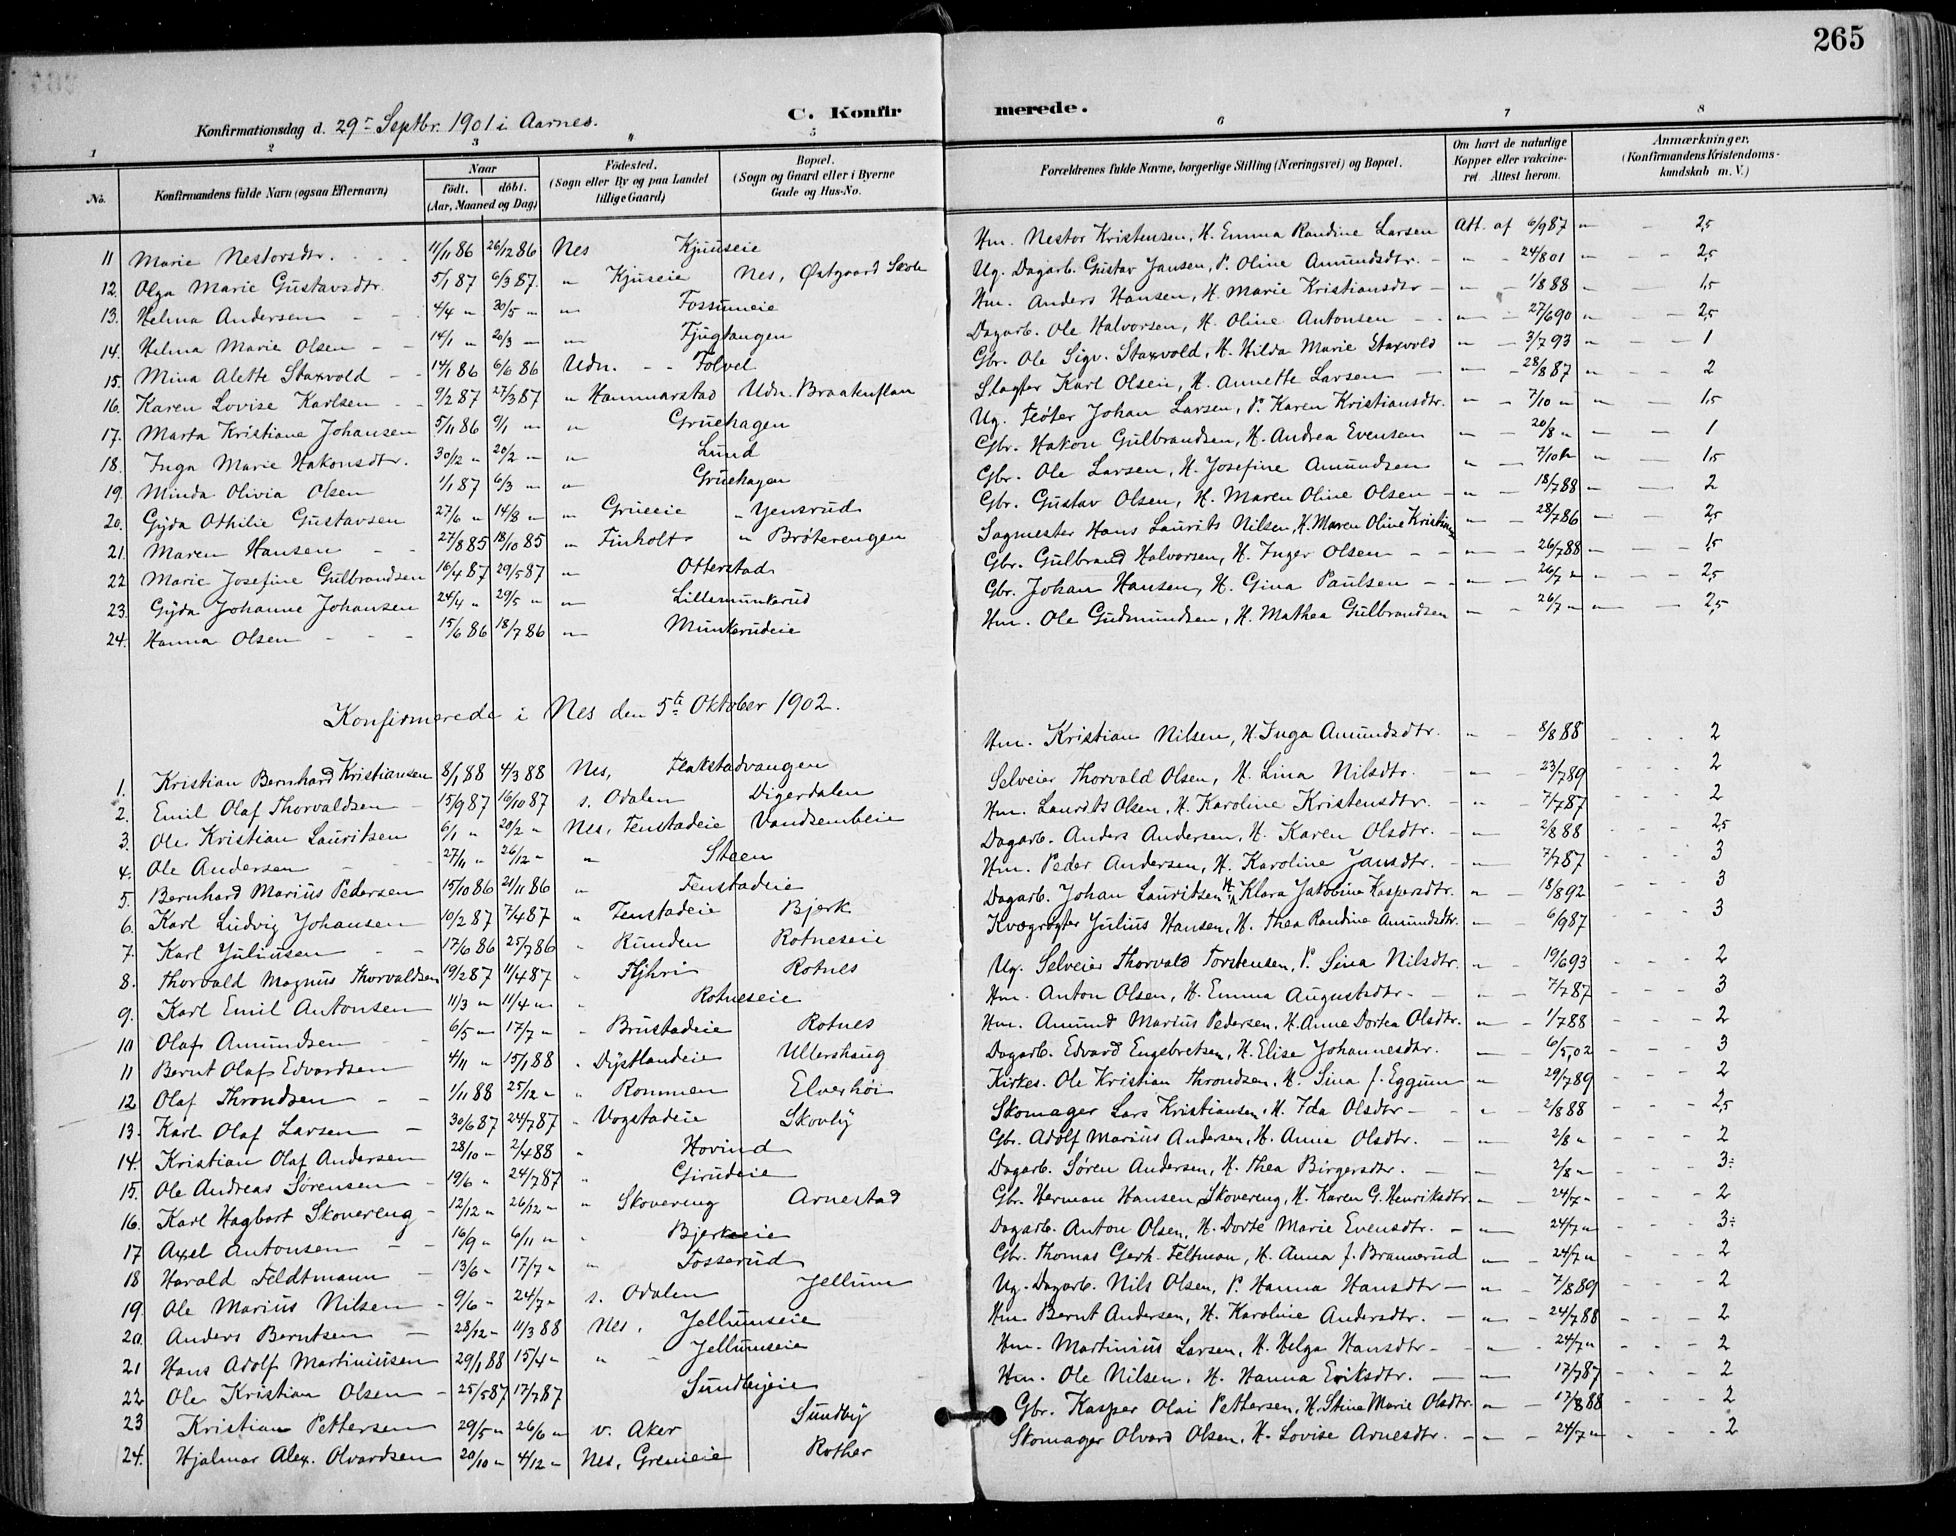 265
Konfirmationsdag d. 29de Septbr. 1901 i Aarnes. C. Konfirmerede.
1 2 3 4 5 6 7 8
No. Konfirmandens fulde Navn (ogsaa Efternavn) Naar født. døbt. (Aar, Maaned og Dag) Fødested. (Sogn eller By og paa Landet tillige Gaard) Bopæl. (Sogn og Gaard eller i Byerne Gade og Hus-No. Forældrenes fulde Navne, borgerlige Stilling (Næringsvei) og Bopæl. Om havt de naturlige Kopper eller vaccineret. Attest herom. Anmærkninger. (Konfirmandens Kristendomskundskab m. V.)
11 Marie Nestorsdtr. 11/11 86 26/12 86 Nes Kjuuseie Hm. Nestor Kristensen, H. Emma Randine Larsen Att. af 6/9 87 " - 2,5
12. Olga Marie Gustavsdtr. 5/1 87 6/3 87. " Kjuseie Nes, Østgaard Skole Ug. Dagarb. Gustav Jansen, P. Oline Amundsdtr. - " - 24/8 01 " - 2,5
13. Helma Andersen 4/4 " 30/5 " " Fossumeie Hm. Anders Hansen, H. Marie Kristiansdtr - " - 1/8 88 " - 1,5
14. Helma Marie Olsen 14/1 " 20/3 " " Tjugtangen Dagarb. Ole Halvorsen, H. Oline Antonsen - " - 27/6 90 " - 2,5
15. Mina Alette Staxvold 14/1 86 6/6 86 Udn. - - Folvel Gbr. Ole Sigv. Staxvold, H. Hilda Marie Staxvold " - 3/7 93 " - 1
16. Karen Lovise Karlsen 9/2 87 27/3 87 " Hammarstad Udn. Braatenflan Slagter Karl Olsen, H. Annette Larsen - " - 28/8 87 " - 2
17. Marta Kristiane Johansen 5/11 86 9/1 " " Gruehagen Ug. Fløter Johan Larsen, P. Karen Kristiansdtr. " - 7/10 " " - 1,5
18. Inga Marie Hakonsdtr. 30/12 " 20/2 " " Lund Gbr. Hakon Gulbrandsen, H. Andrea Evensen " - 20/8 " " - 1
19. Minda Olivia Olsen 1/1 87 6/3 " " Gruehagen Gbr. Ole Larsen, H. Josefine Amundsen " - 7/10 " " - 1,5
20. Gyda Othilie Gustavsen 27/6 " 14/8 " " Grueeie " Yensrud Gbr. Gustav Olsen, H. Maren Oline Olsen - " - 18/7 88 " - 2
21. Maren Hansen 27/8 85 18/10 85 " Finholt " Brøterengen Sagmester Hans Laurits Nilsen, H. Maren Oline Kristians " - 28/7 86 " - 2,5
22 Marie Josefine Gulbrandsen 16/4 87 29/5 87 " Otterstad Gbr. Gulbrand Halvorsen, H. Inger Olsen - - " - 26/7 88 " - 1,5
23. Gyda Johanne Johansen 24/4 " 29/5 " " Lillemunkerud Gbr. Johan Hansen, H. Gina Paulsen - - " - 26/7 " " - 2,5
24. Hanna Olsen 15/6 86 18/7 86 " Munkerudeie Hm. Ole Gudmundsen, H. Mathea Gulbrandsen " - 26/7 " " - 2,5
Konfirmerede i Nes den 5te Oktober 1902.
1. Kristian Bernhard Kristiansen 8/1 88 4/3 88 Nes, Flakstadvangen Hm. Kristian Nilsen, H. Inga Amundsdtr. " - 8/8 88 - 2
2. Emil Olaf Thorvaldsen 15/9 87 16/10 87 s. Odalen Digerdalen Selveier Thorvald Olsen, H. Lina Nilsdtr. - " - 23/7 89 - 2
3. Ole Kristian Lauritsen 6/1 " 20/2 " Nes, Tenstadeie Vandsembeie Hm. Laurits Olsen, H. Karoline Kristensdtr. - " - 7/7 87 - 2
4. Ole Andersen 27/11 " 26/12 " " Steen Dagarb. Anders Andersen, H. Karen Olsdtr. - " - 2/8 88 - 2,5
5. Bernhard Marius Pedersen 15/10 86 21/11 86 " Tenstadeie Hm. Peder Andersen, H. Karoline Jansdtr. - " - 7/7 87 - 3
6. Karl Ludvig Johansen 10/2 87 7/4 87 " Tenstadeie Bjerk Dagarb. Johan Lauritsen, H. Klara Jakobine Kaspersdtr. " - 18/8 92 - 3
7. Karl Juliusen 17/6 86 25/7 86 " Runden Rotneseie Kvægrøgter Julius Hansen, H. Thea Randine Amundsdtr. " - 6/9 87 - 3
8. Thorvald Magnus Thorvaldsen 19/2 87 11/4 87 " Rotnes Ug. Selveier Thorvald Torstensen, P. Sina Nilsdtr. " - 19/6 93 - 2
9. Karl Emil Antonsen 11/3 " 11/4 " " Rotneseie Hm. Anton Olsen, H. Emma Augustsdtr. - " - 7/7 87 - 3
10 Olaf Amundsen 6/5 " 17/7 " " Brustadeie Rotnes Hm. Amund Marius Pedersen, H. Anne Dortea Olsdtr. " - 1/7 88 - 2
11 Bernt Olaf Edvardsen 4/11 " 15/1 88 " Dystlandeie Ullershaug Dagarb. Edvard Engebretsen, H. Elise Johannesdtr. - 6/5, 02 - 3
12 Olaf Throndsen 1/11 88 25/12 " " Rommen Elverhøi Kirkes. Ole Kristian Throndsen, H. Sina f. Eggum " - 29/7 89 - 2
13. Karl Olaf Larsen 30/6 87 24/7 87 " Vogstadeie Skovly Skomager Lars Kristiansen, H. Ida Olsdtr - " - 2/8 88 - 2,5
14. Kristian Olaf Andersen 28/10 " 2/4 88 " Hovind Gbr. Adolf Marius Andersen, H. Anna Olsdtr. - " - 2/8 " - 2
15. Ole Andreas Sørensen 19/6 " 24/7 87 " Girudeie Dagarb. Søren Andersen, H. Thea Birgersdtr. - " - 2/8 " - 3-
16. Karl Hagbart Skovereng 12/12 " 26/12 " " Skovereng Arnestad Gbr. Herman Hansen Skovereng, H. Karen G. Henriksdtr " - 24/7 " - 2
17 Axel Antonsen 16/9 " 6/11 " " Bjerkeeie Dagarb. Anton Olsen, H. Dorte Marie Evensdtr. - " - 24/7 " - 3-
18 Harald Feldtmann 13/6 " 17/7 " " Fosserud Gbr. Thomas Gerh. Feltman, H. Anna f. Brannerud " - 24/7 " - 2
19. Ole Marius Nilsen 9/6 " 24/7 " s. Odalen Jellum Ug. Dagarb. Nils Olsen, P. Hanna Hansdtr - " - 7/8 89 - 2
20. Anders Berntsen 28/12 " 11/3 88 Nes, Jellumseie Hm. Bernt Andersen, H. Karoline Andersdtr. - " - 24/7 88 - 2
21 Hans Adolf Martiniusen 29/1 88 15/4 " " - Jellumseie Hm. Martinius Larsen, H. Helga Hansdtr - " - 24/7 " - 2
22 Ole Kristian Olsen 25/5 87 17/7 87 Sundbyeie Hm. Ole Nilsen, H. Hanna Eriksdtr. - " - 17/7 87 - 2
23 Kristian Pettersen 29/5 " 26/6 " v. Aker Sundby Gbr. Kasper Olai Pettersen, H. Stine Marie Olsdtr. " - 17/8 88 - 2
24. Hjalmar Alex. Olvardsen 20/10 " 4/12 " Nes, Greneie Rother Skomager Olvard Olsen, H. Lovise Arnesdtr. - " - 24/7 " - 2